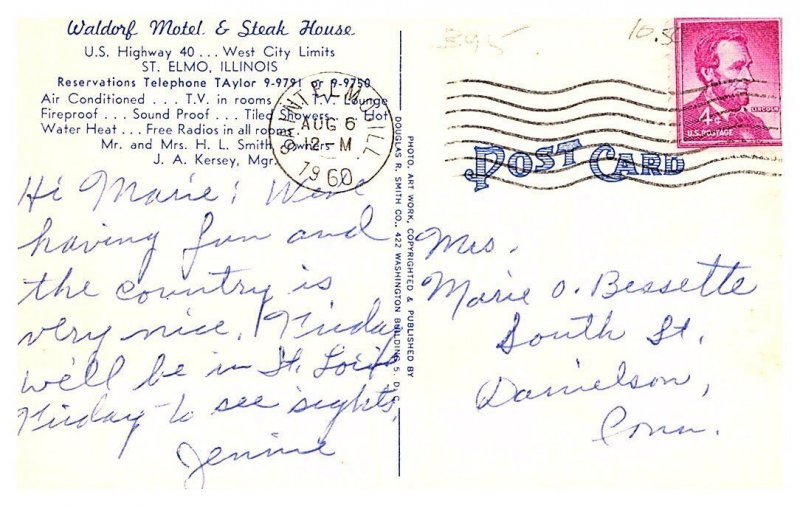 Waldorf Motel & Steak House
U.S. Highway 40 ... West City Limits
ST. ELMO, ILLINOIS
Reservations Telephone TAylor 9-9791 or 9-9750
Air Conditioned . . . T.V. in rooms . . . T.V. Lounge
Fireproof . . . Sound Proof . . . Tiled Showers . . . Hot
Water Heat . . . Free Radios in all rooms
Mr. and Mrs. H. L. Smith, Owners
J. A. Kersey, Mgr.
SAINT ELMO, ILL
AUG 6
12-M
1960
Hi Marie; We're
having fun and
the country is
very nice. Friday
we'll be in St. Louis
Friday to see sights,
Jennie
PHOTO, ART WORK, COPYRIGHTED & PUBLISHED BY
DOUGLAS R. SMITH CO., 422 WASHINGTON BUILDING 5, D.C.
395
10.50
4¢
LINCOLN
U.S. POSTAGE
POST CARD
Mrs.
Marie O. Bessette
South St.
Danielson,
Conn.